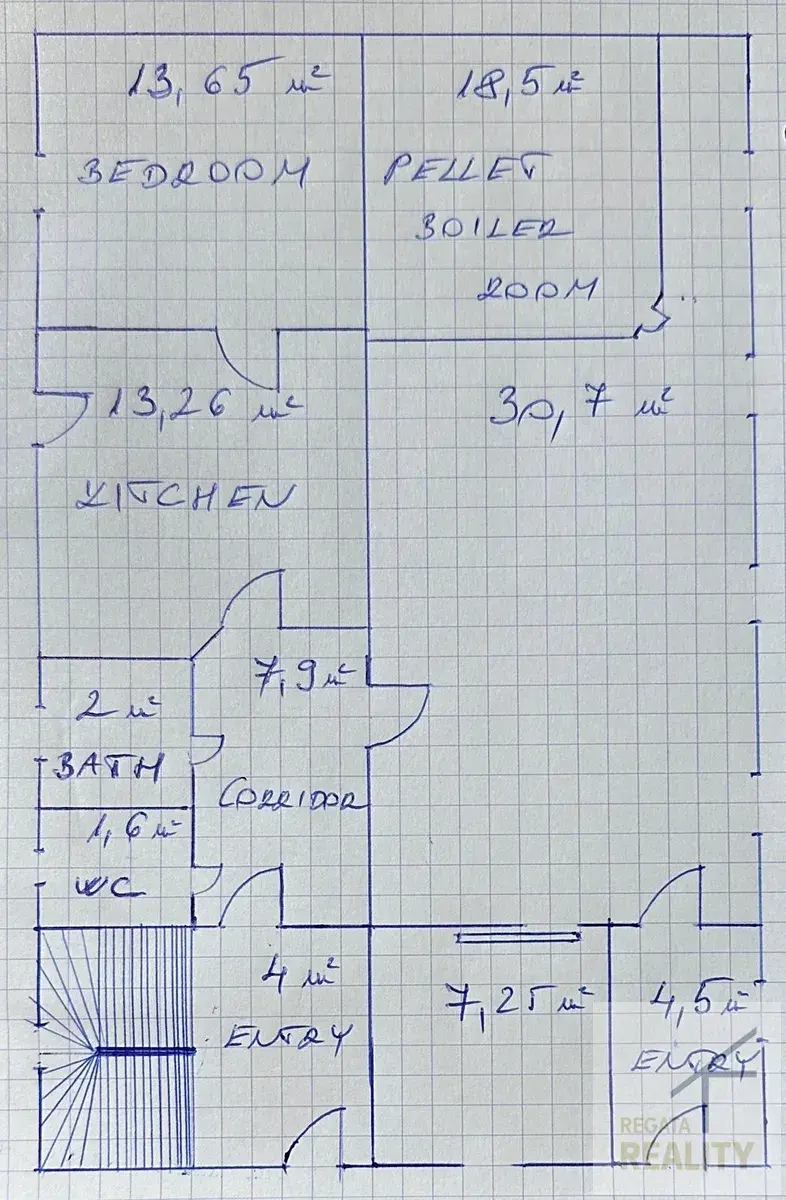 13,65 m²
BEDROOM
18,5 m²
PELLET
BOILER
ROOM
13,26 m²
KITCHEN
30,7 m²
7,9 m²
CORRIDOR
2 m²
BATH
1,6 m²
WC
4 m²
ENTRY
7,25 m²
4,5 m²
ENTRY
REGATA
REALITY